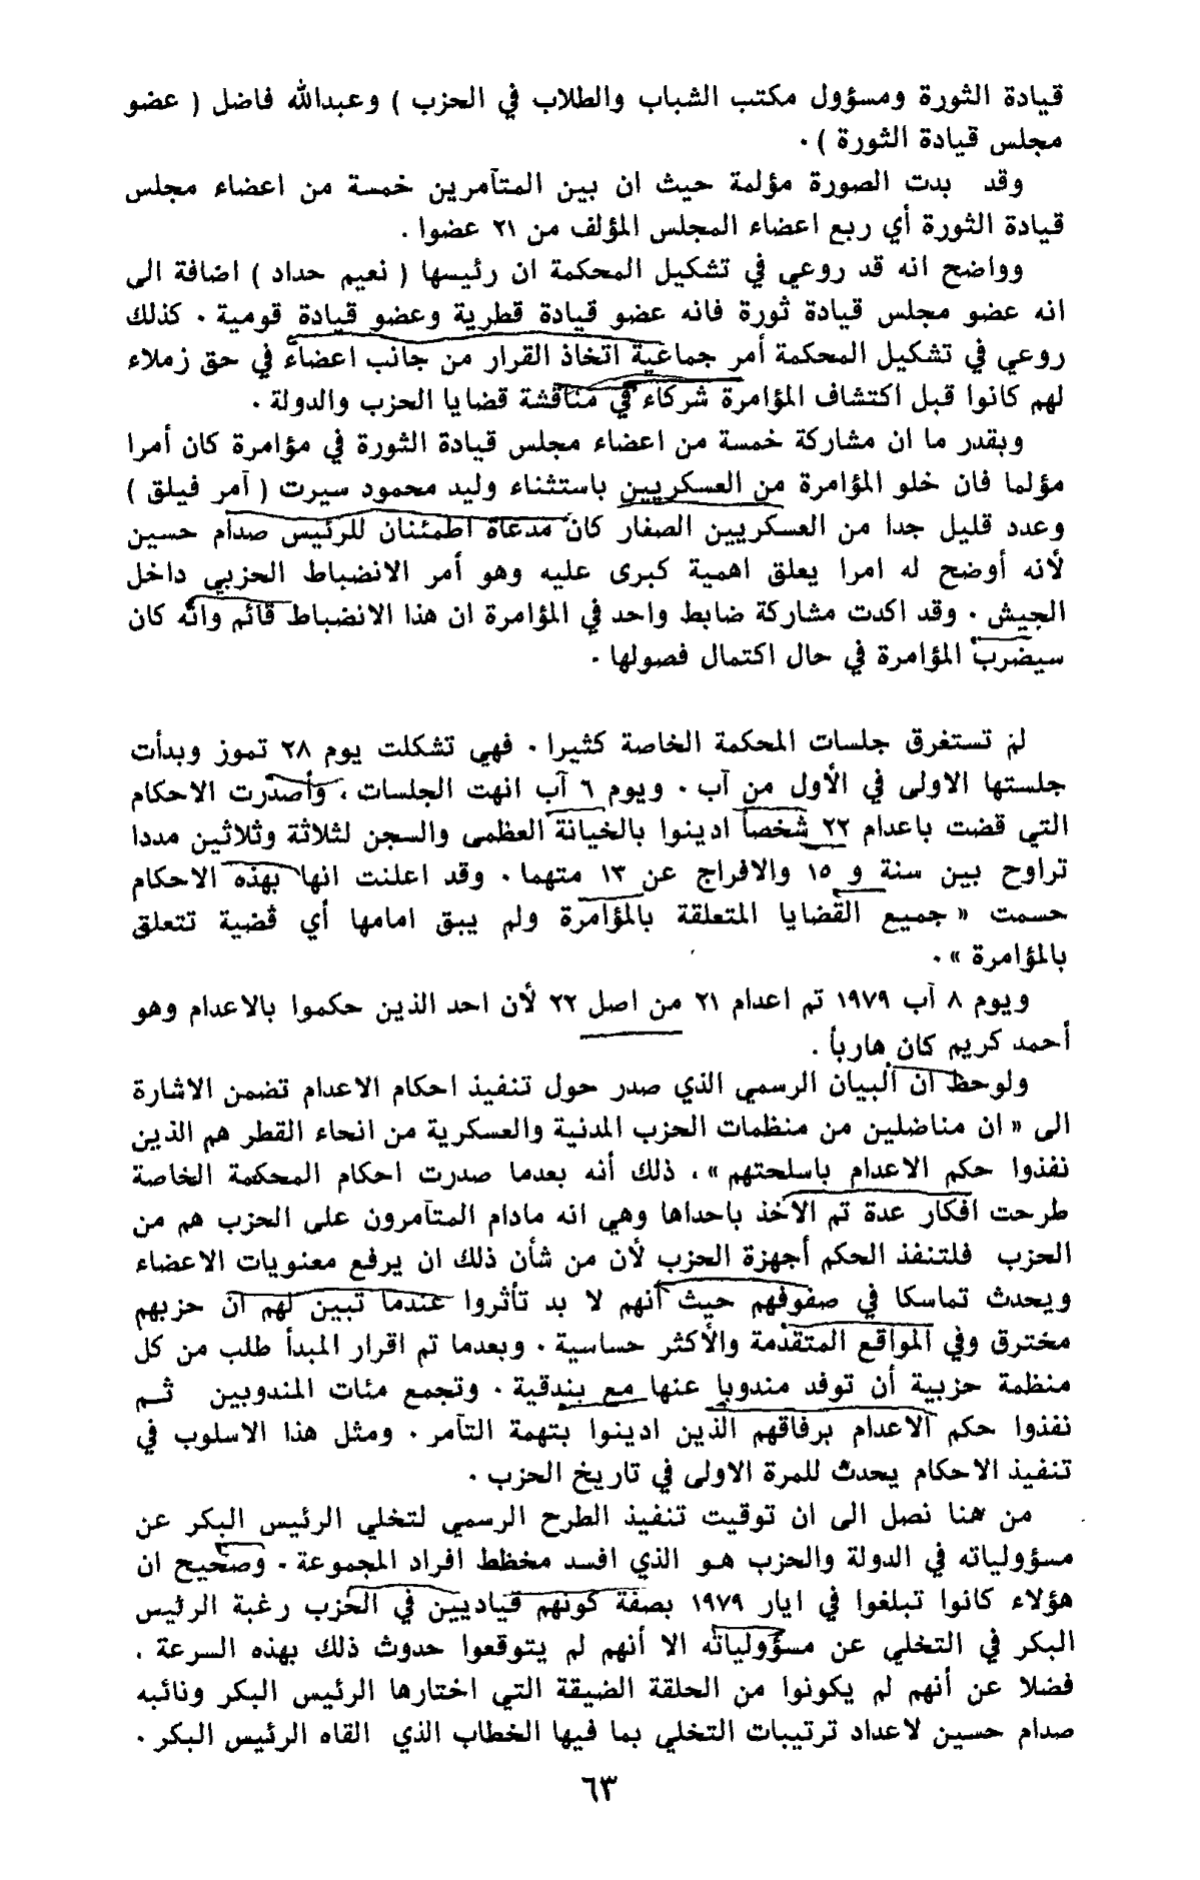 قيادة الثورة ومسؤول مكتب الشباب والطلاب في الحزب ) وعبدالله فاضل ( عضو
مجلس قيادة الثورة ) .
وقد بدت الصورة مؤلمة حيث ان بين المتآمرين خمسة من اعضاء مجلس
قيادة الثورة أي ربع اعضاء المجلس المؤلف من ٢١ عضوا .
وواضح انه قد روعي في تشكيل المحكمة ان رئيسها ( نعيم حداد ) اضافة الى
انه عضو مجلس قيادة ثورة فانه عضو قيادة قطرية وعضو قيادة قومية . كذلك
روعي في تشكيل المحكمة أمر جماعية اتخاذ القرار من جانب اعضاء في حق زملاء
لهم كانوا قبل اكتشاف المؤامرة شركاء في مناقشة قضايا الحزب والدولة .
وبقدر ما ان مشاركة خمسة من اعضاء مجلس قيادة الثورة في مؤامرة كان أمرا
مؤلما فان خلو المؤامرة من العسكريين باستثناء وليد محمود سيرت ( آمر فيلق )
وعدد قليل جدا من العسكريين الصفار كان مدعاة اطمئنان للرئيس صدام حسين
لأنه أوضح له امرا يعلق اهمية كبرى عليه وهو أمر الانضباط الحزبي داخل
الجيش . وقد اكدت مشاركة ضابط واحد في المؤامرة ان هذا الانضباط قائم وانه كان
سيضرب المؤامرة في حال اكتمال فصولها .
لم تستغرق جلسات المحكمة الخاصة كثيرا . فهي تشكلت يوم ٢٨ تموز وبدأت
جلستها الاولى في الأول من آب . ويوم ٦ آب انهت الجلسات ، وأصدرت الاحكام
التي قضت باعدام ٢٢ شخصا ادينوا بالخيانة العظمى والسجن لثلاثة وثلاثين مددا
تراوح بين سنة و ١٥ والافراج عن ١٣ متهما . وقد اعلنت انها بهذه الاحكام
حسمت « جميع القضايا المتعلقة بالمؤامرة ولم يبق امامها أي قضية تتعلق
بالمؤامرة » .
ويوم ٨ آب ١٩٧٩ تم اعدام ٢١ من اصل ٢٢ لأن احد الذين حكموا بالاعدام وهو
أحمد كريم كان هارباً .
ولوحظ ان البيان الرسمي الذي صدر حول تنفيذ احكام الاعدام تضمن الاشارة
الى « ان مناضلين من منظمات الحزب المدنية والعسكرية من انحاء القطر هم الذين
نفذوا حكم الاعدام باسلحتهم » ، ذلك أنه بعدما صدرت احكام المحكمة الخاصة
طرحت افكار عدة تم الاخذ باحداها وهي انه مادام المتآمرون على الحزب هم من
الحزب فلتنفذ الحكم أجهزة الحزب لأن من شأن ذلك ان يرفع معنويات الاعضاء
ويحدث تماسكا في صفوفهم حيث أنهم لا بد تأثروا عندما تبين لهم ان حزبهم
مخترق وفي المواقع المتقدمة والأكثر حساسية . وبعدما تم اقرار المبدأ طلب من كل
منظمة حزبية أن توفد مندوبا عنها مع بندقية . وتجمع مئات المندوبين ثم
نفذوا حكم الاعدام برفاقهم الذين ادينوا بتهمة التآمر . ومثل هذا الاسلوب في
تنفيذ الاحكام يحدث للمرة الاولى في تاريخ الحزب .
من هنا نصل الى ان توقيت تنفيذ الطرح الرسمي لتخلي الرئيس البكر عن
مسؤولياته في الدولة والحزب هو الذي افسد مخطط افراد المجموعة . وصحيح ان
هؤلاء كانوا تبلغوا في ايار ١٩٧٩ بصفة كونهم قياديين في الحزب رغبة الرئيس
البكر في التخلي عن مسؤولياته الا أنهم لم يتوقعوا حدوث ذلك بهذه السرعة .
فضلا عن أنهم لم يكونوا من الحلقة الضيقة التي اختارها الرئيس البكر ونائبه
صدام حسين لاعداد ترتيبات التخلي بما فيها الخطاب الذي القاه الرئيس البكر .
٦٣